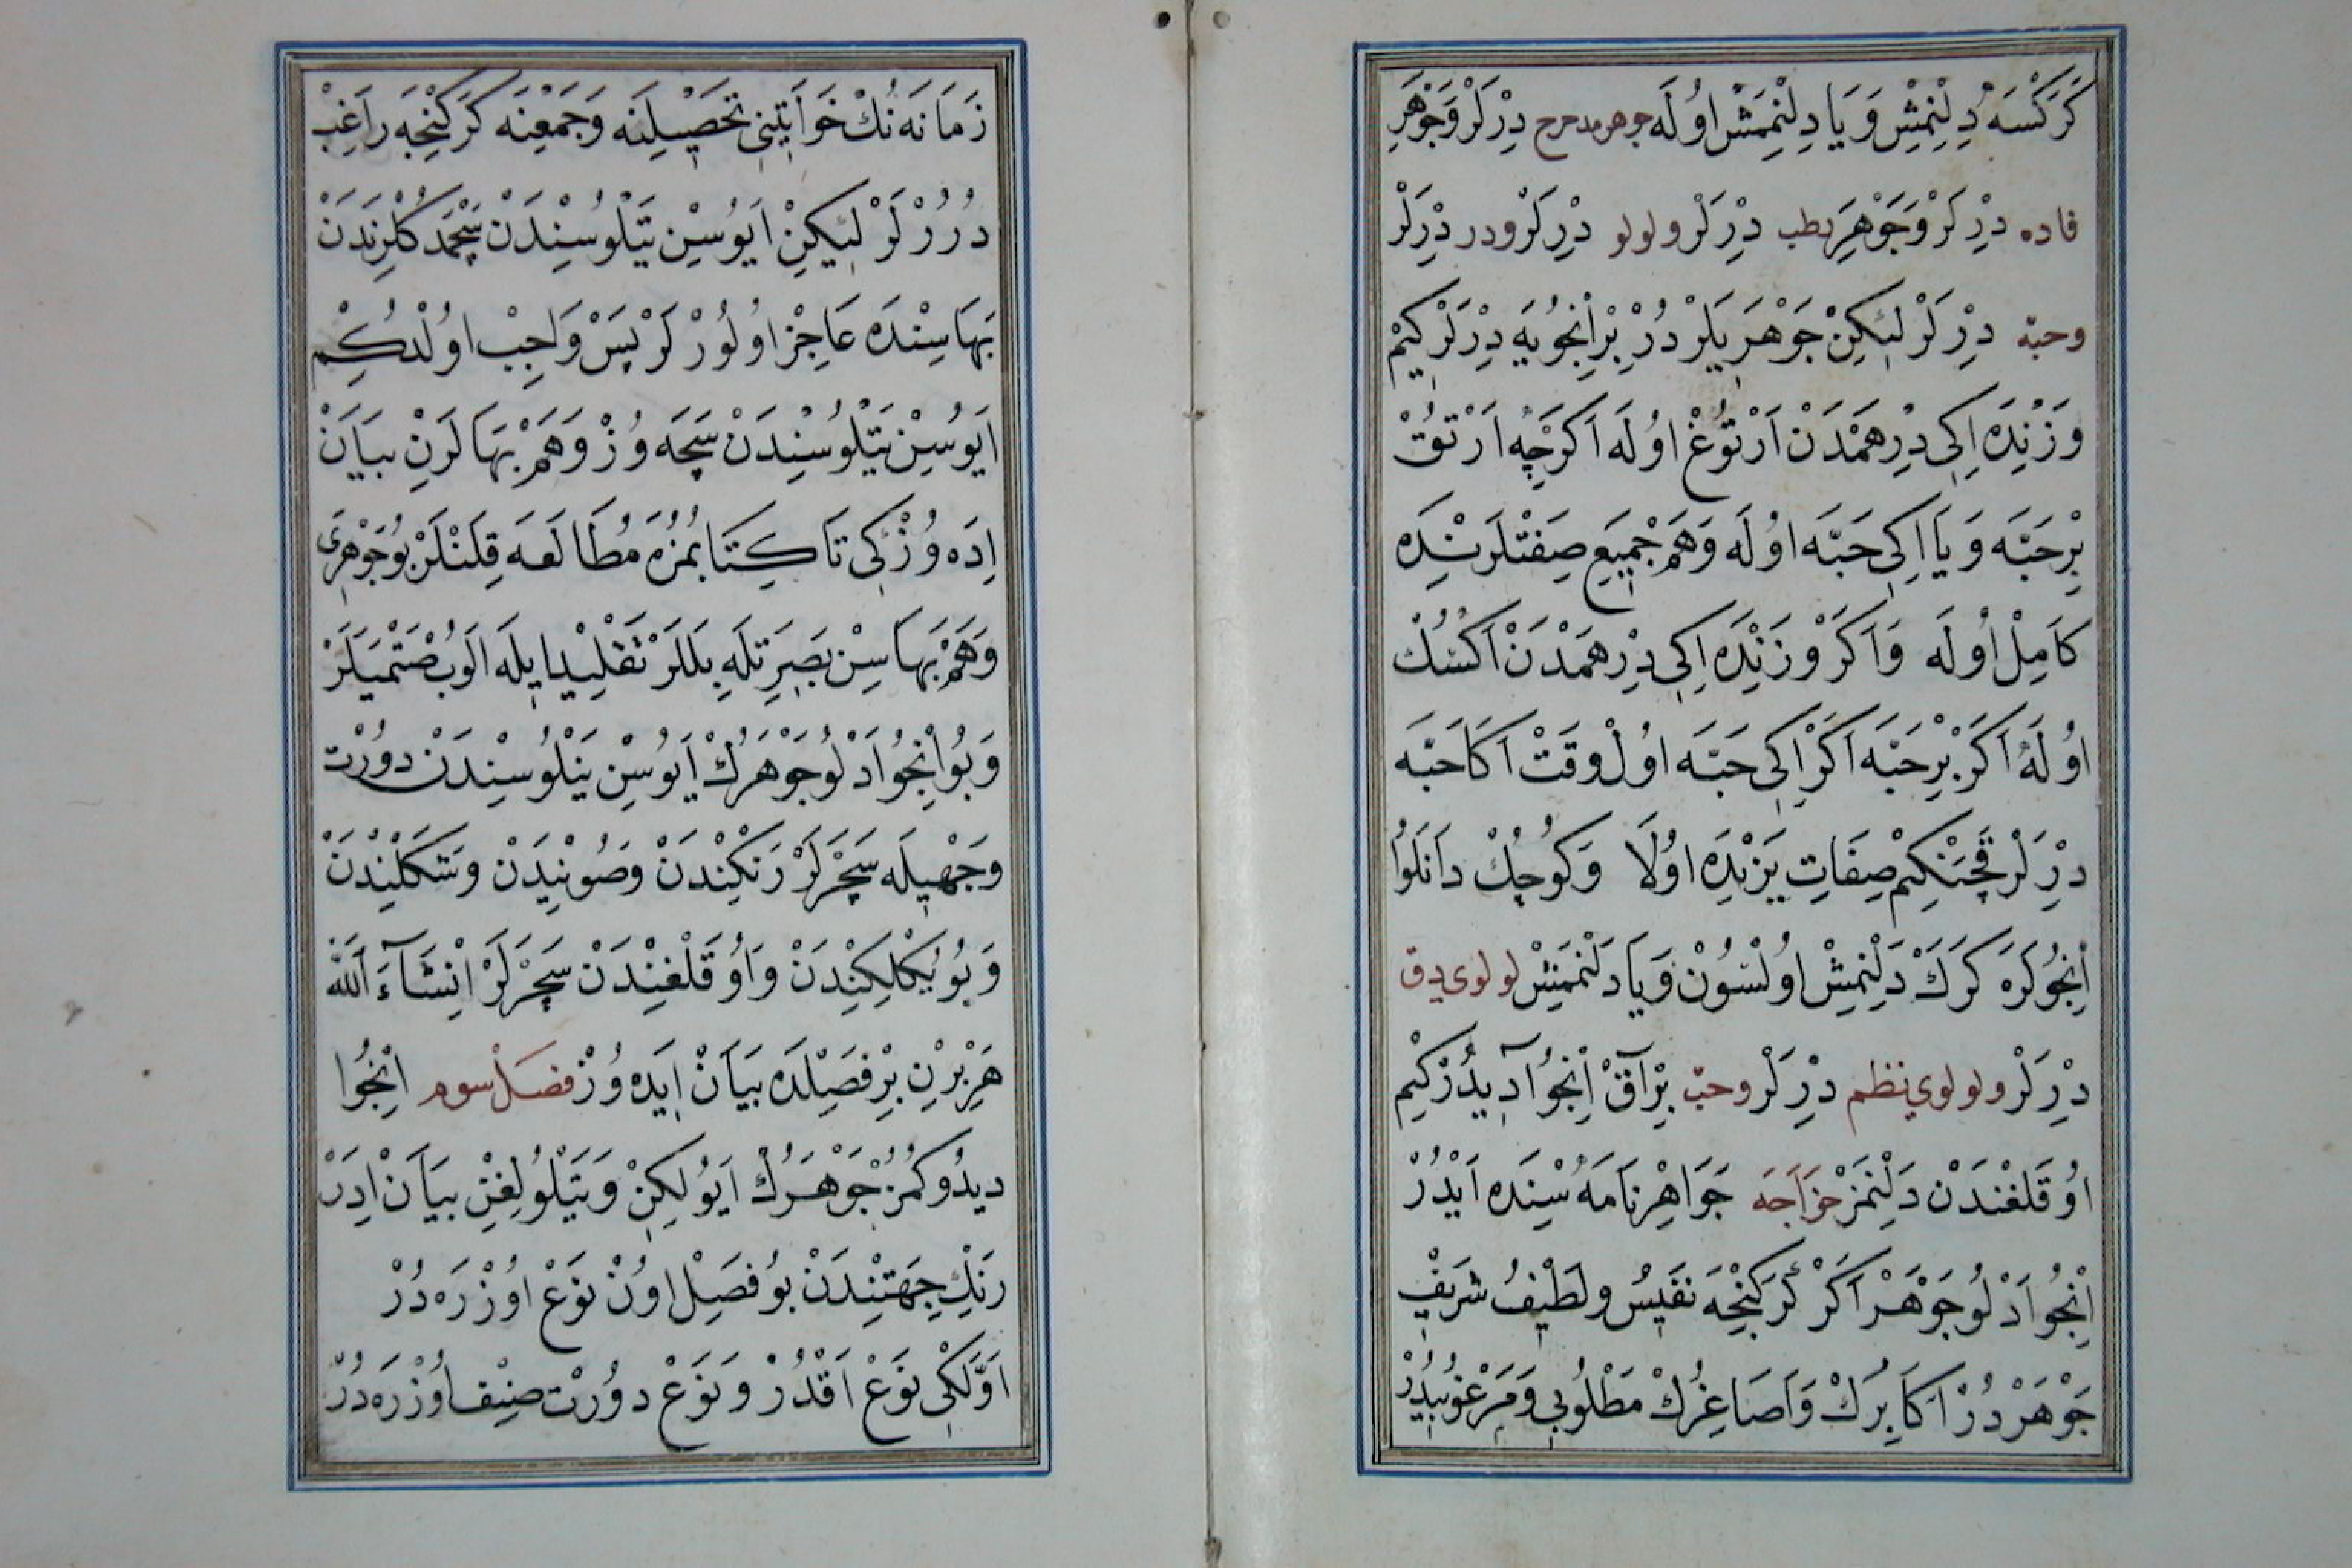 كَرَكْسَه دِلِنْمِشْ وَيَا دِلِنْمَمِشْ اوُلَه جوهر مدحرج دِرْلَرْ وَجَوْهَرِ
فاده دِرْلَرْ وَجَوْهَرِ بطب دِرْلَرْ ولولو دِرْلَرْ ودر دِرْلَرْ
وحبّه دِرْلَرْ لٖيكِنْ جَوْهَرٖيلَرْ دُرْ بِرْ اِنْجُويَه دِرْلَرْ كِيمْ
وَزْنِدَه اِكِي دِرْهَمْدَنْ اَرْتُوغْ اوُلَه اَكَرْچِه اَرْتُقْ
بِرْ حَبَّه وَيَا اِكِي حَبَّه اوُلَه وَهَمْ جَمِيعِ صِفَتْلَرِنْدَه
كَامِلْ اوُلَه وَاَكَرْ وَزْنِنْدَه اِكِي دِرْهَمْدَنْ اَكْسُكْ
اوُلَه اَكَرْ بِرْ حَبَّه اَكَرْ اِكِي حَبَّه اوُلْ وَقَتْ اَكَا حَبَّه
دِرْلَرْ قَچَنْكِمْ صِفَاتِ يَزِنْدَه اوُلَا وَكُوچُكْ دَانَلُو
اِنْجُولَرَه كَرَكْ دَلِنْمِشْ اوُلْسُونْ وَيَا دَلِنْمَمِشْ لولوى دق
دِرْلَرْ ولولوي نظم دِرْلَرْ وحبّ بِرْ آقْ اِنْجُو آدٖيدُرْكِيمْ
اوُقَلِغِنْدَنْ دَلِنْمَزْ خوَاجَه جَوَاهِرْنَامَه سِنْدَه اَيْدُرْ
اِنْجُو اَدْلُو جَوْهَرْ اَكَرْ كَرَكِنْجَه نَفِيسُ ولَطِيفُ شَرِيفْ
جَوْهَرْ دُرْ اَكَابِرُكْ وَاَصَاغِرُكْ مَطْلُوبِي وَمَرْغُوبٖيدُرْ
زَمَانَه نُكْ خَوَاتِينِي تَحْصِيلِنَه وَجَمْعِنَه كَرَكِنْجَه رَاغِبْ
دُرُرْلَرْ لٖيكِنْ اَيُوسِنْ يَتْلُوسِنْدَنْ سَچْمَكْلِرِنْدَنْ
بَهَاسِنْدَه عَاجِزْ اوُلُورْلَرْ پَسْ وَاجِبْ اوُلْدُكِمْ
اَيُوسِنْ يَتْلُوسِنْدَنْ سَچَه وُزْ وَهَمْ بَهَالَرِنْ بَيَانْ
اِدَه وُزْ كِي تَا كِتَابُمُزَه مُطَالَعَه قِلَنْلَرْ بُو جَوْهَرِى
وَهَمْ بَهَاسِنْ بَصِيرَتِلَه بِلَلَرْ تَقْلِيدْ اِيلَه اَلُوبْ صَتْمَيَلَرْ
وَبُو اِنْجُو اَدْلُو جَوْهَرُكْ اَيُوسِنْ يَتْلُوسِنْدَنْ دوُرْت
وَجْهِيلَه سَچَرْلَرْ رَنْكِنْدَنْ وصُوئِنْدَنْ وشَكْلِنْدَنْ
وَبُويُكْلِكِنْدَنْ وَاوُقَلِغِنْدَنْ سَچَرْلَرْ اِنْشَآءَ اَللّٰه
هَرْ بِرْنِ بِرْ فَصِلْدَه بَيَانْ اِيَدَه وُزْ فصل سوم اِنْجُوا
دِيدُوكُمُزْ جَوْهَرُكْ اَيُولِكِنْ وَيَتْلُولِغِنْ بَيَانْ اِدَرْ
رَنْكِ جِهَتِنْدَنْ بُو فَصِلْ اوُنْ نَوْعْ اوُزْرَه دُرْ
اَوَّلْكِى نَوْعْ اَقْدُرْ وَنَوْعْ دوُرْت صِنِفْ اوُزْرَه دُرْ